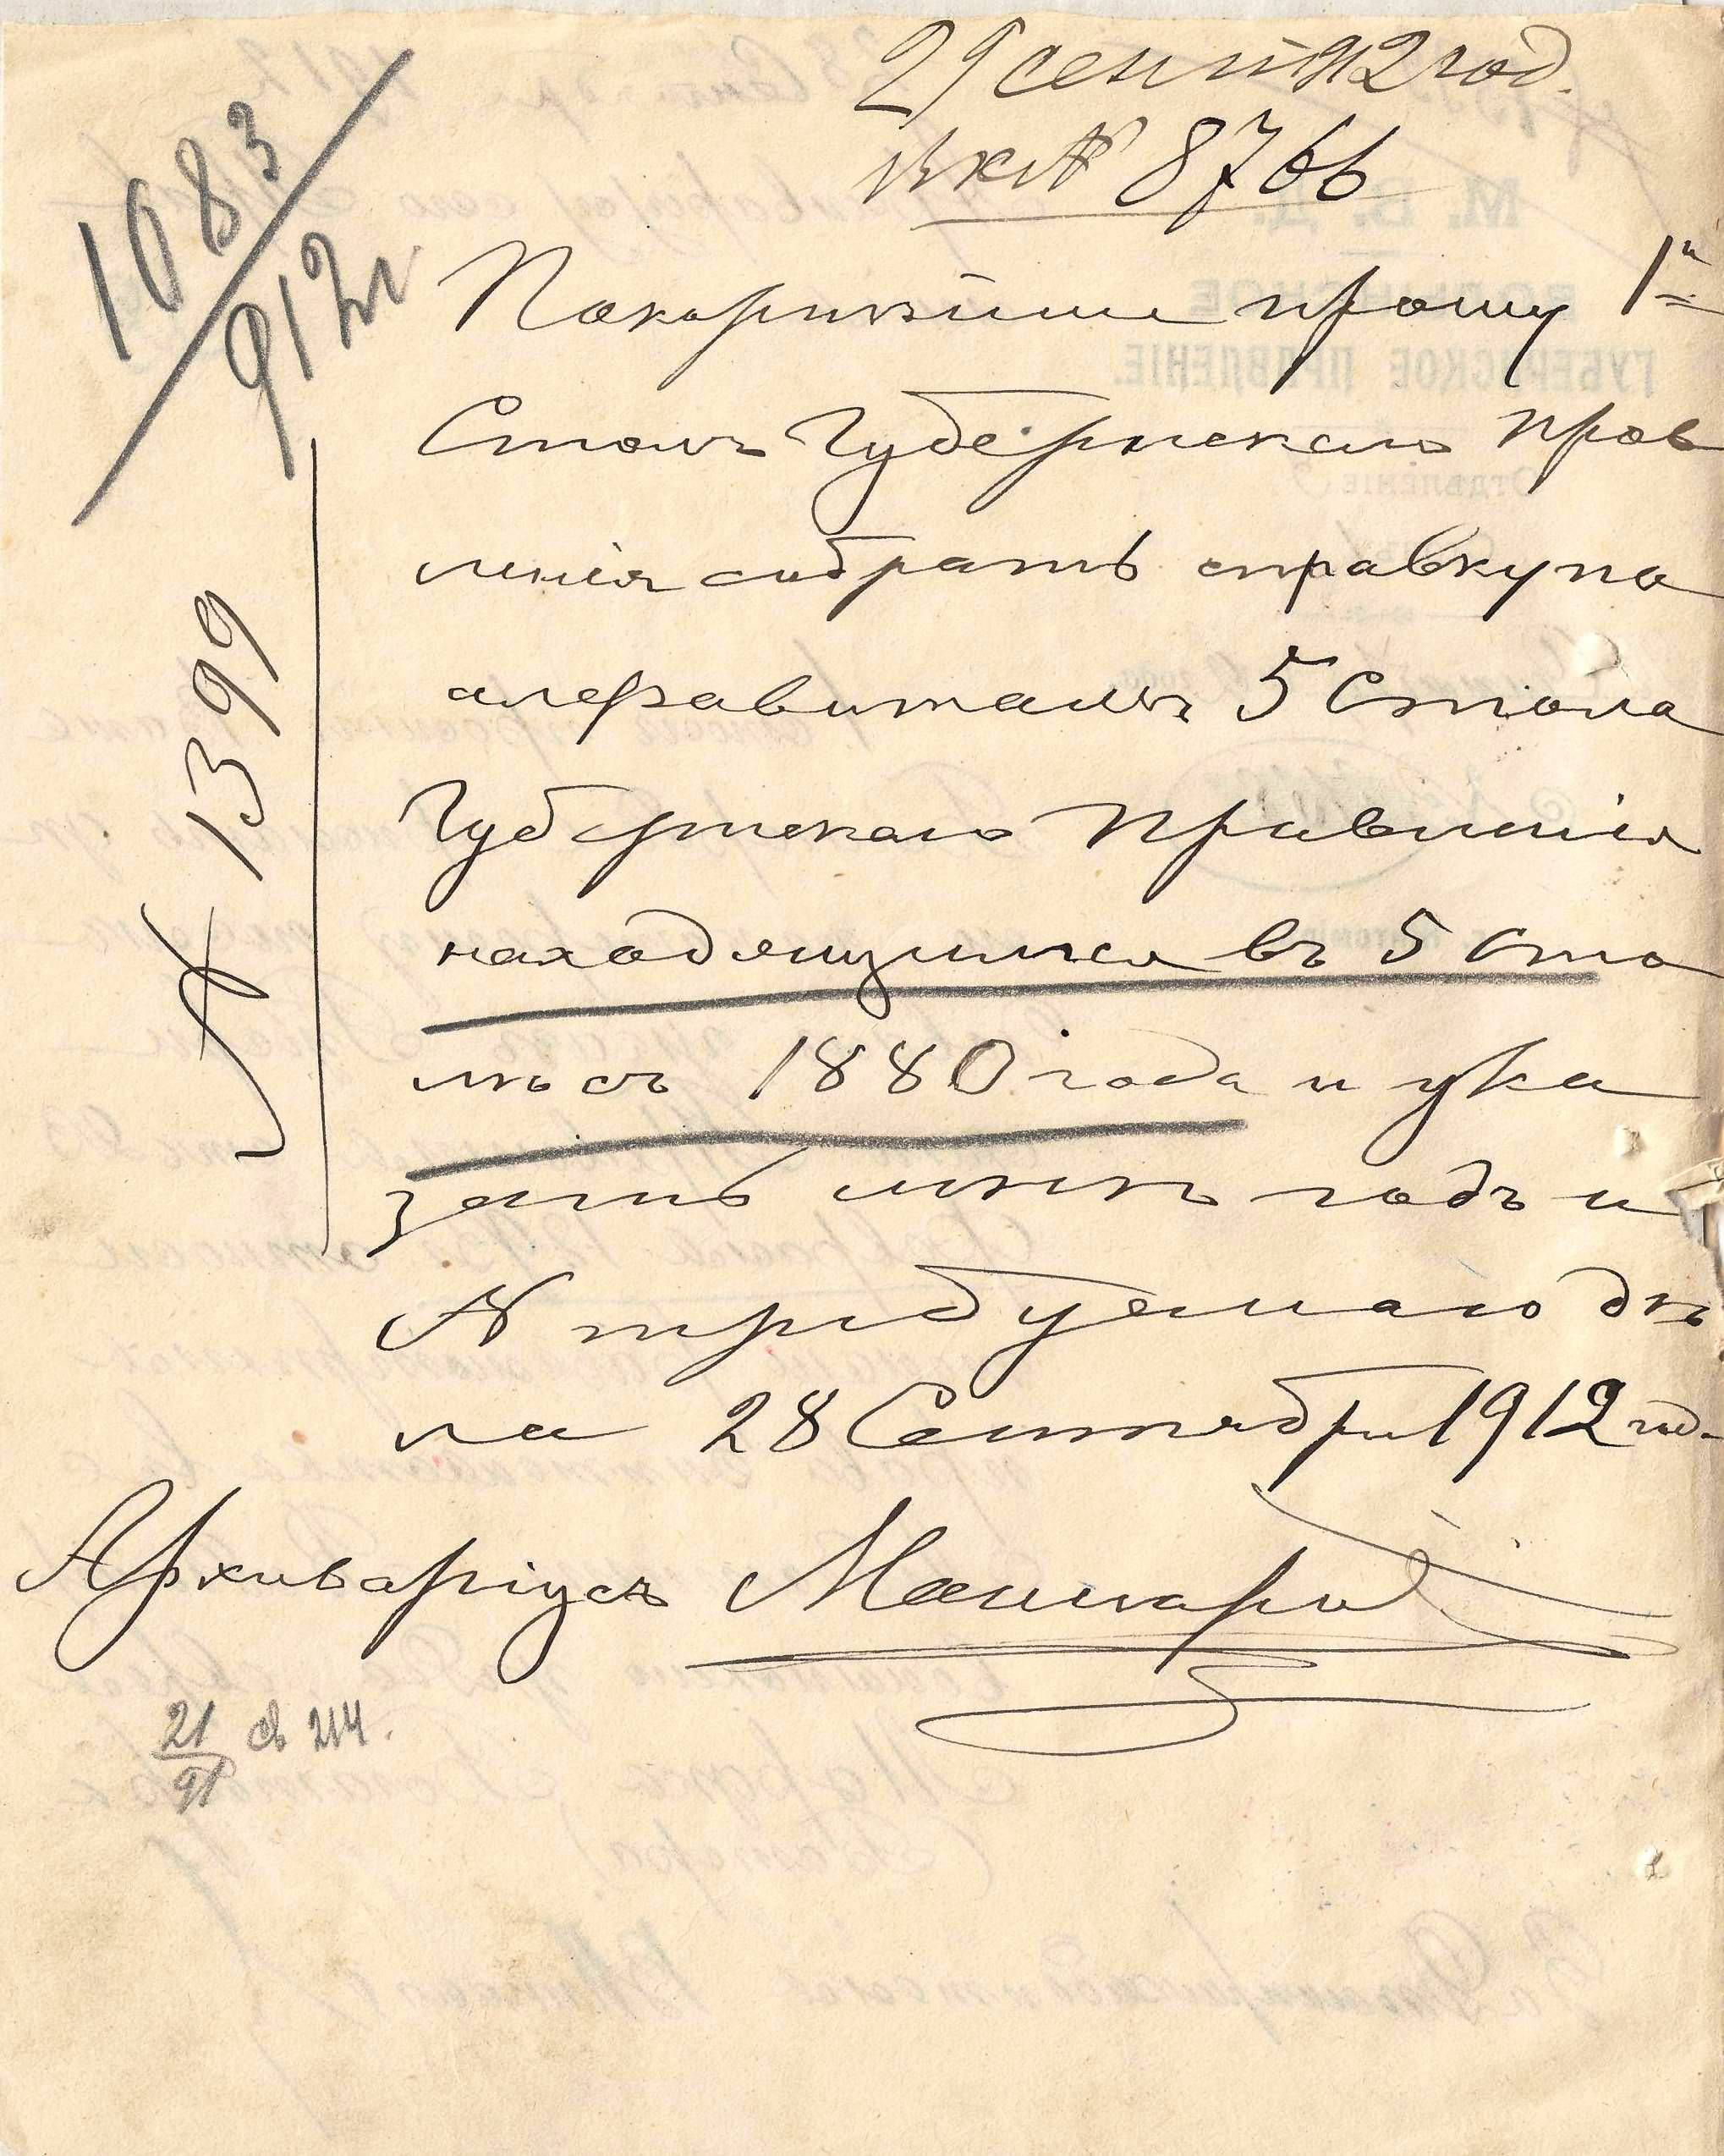 29 сент 912 год.
вх № 8766
1083
912 г
№ 1399
Покорнѣйше прошу 1й
Столъ Губернскаго Прав
ленія собрать справку по
алфавитамъ 5 Стола
Губернскаго Правленія
находящимся въ 5 сто
лѣ съ 1880 года и ука
зать мнѣ годъ и
№ требуемаго дѣ
ла 28 Сентября 1912 год.
Архиваріусъ
21 св 214.
91